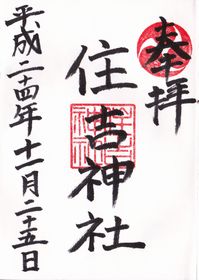 奉拝
住吉神社
平成二十四年十一月二十五日